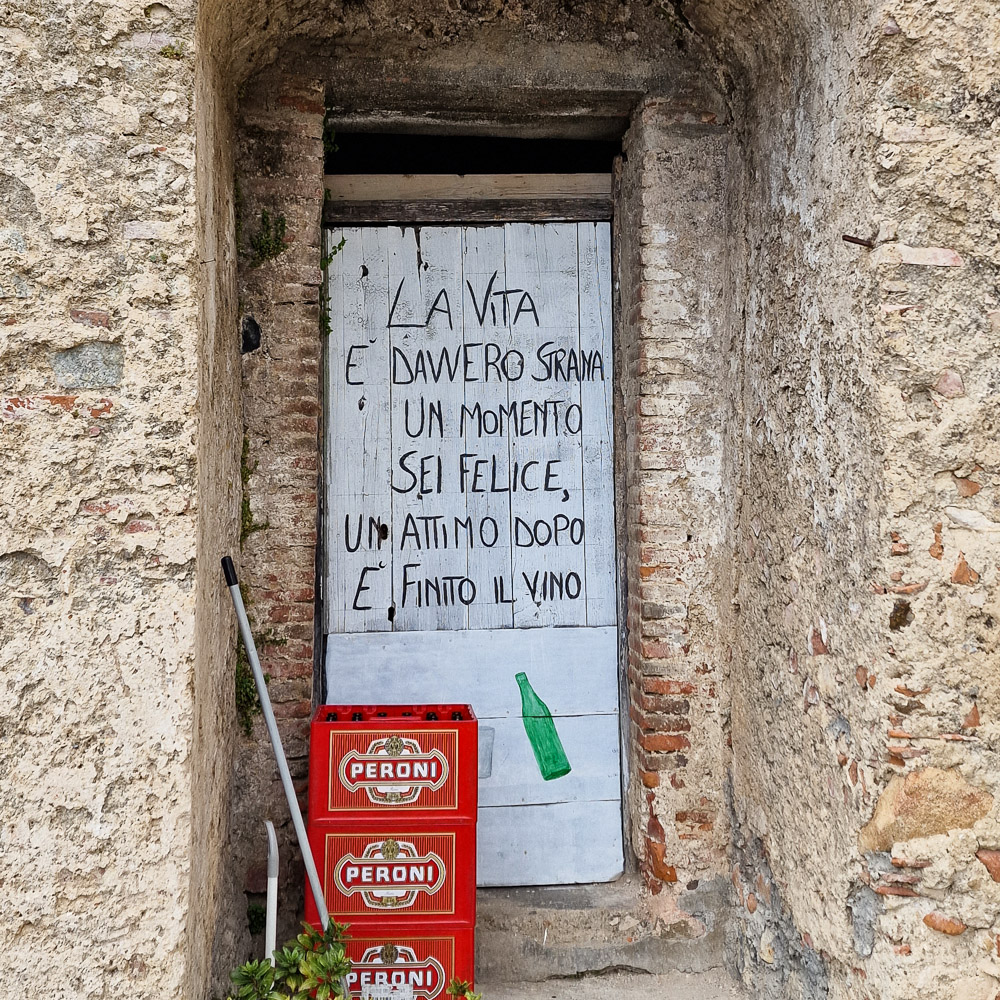 LA VITA
E' DAVVERO STRANA
UN MOMENTO
SEI FELICE,
UN ATTIMO DOPO
E' FINITO IL VINO
PERONI
PERONI
PERONI